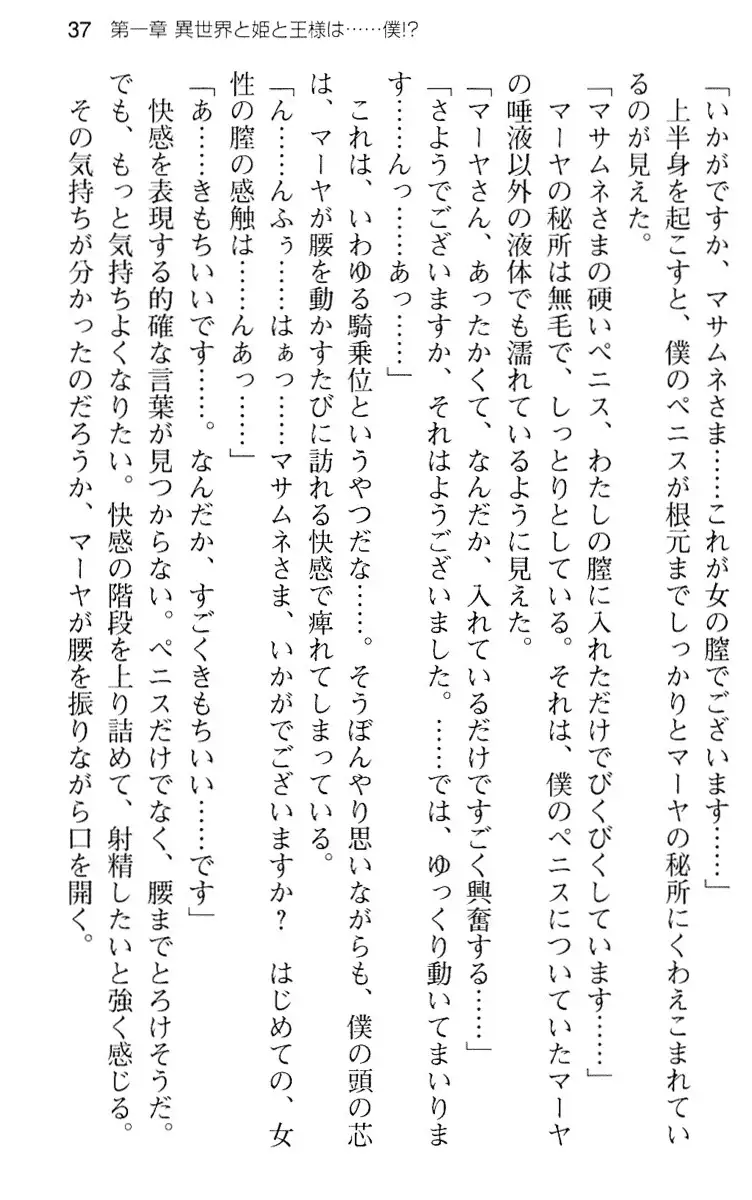 37 第一章 異世界と姫と王様は……僕!?
「いかがですか、マサムネさま……これが女の膣でございます……」
上半身を起こすと、僕のペニスが根元までしっかりとマーヤの秘所にくわえこまれてい
るのが見えた。
「マサムネさまの硬いペニス、わたしの膣に入れただけでびくびくしています……」
マーヤの秘所は無毛で、しっとりとしている。それは、僕のペニスについていたマーヤ
の唾液以外の液体でも濡れているように見えた。
「マーヤさん、あったかくて、なんだか、入れているだけですごく興奮する……」
「さようでございますか、それはようございました。……では、ゆっくり動いてまいりま
す……んっ……あっ……」
これは、いわゆる騎乗位というやつだな……。そうぼんやり思いながらも、僕の頭の芯
は、マーヤが腰を動かすたびに訪れる快感で痺れてしまっている。
「ん……んふぅ……はぁっ……マサムネさま、いかがでございますか？　はじめての、女
性の膣の感触は……んあっ……」
「あ……きもちいいです……。なんだか、すごくきもちいい……です」
快感を表現する的確な言葉が見つからない。ペニスだけでなく、腰までとろけそうだ。
でも、もっと気持ちよくなりたい。快感の階段を上り詰めて、射精したいと強く感じる。
その気持ちが分かったのだろうか、マーヤが腰を振りながら口を開く。